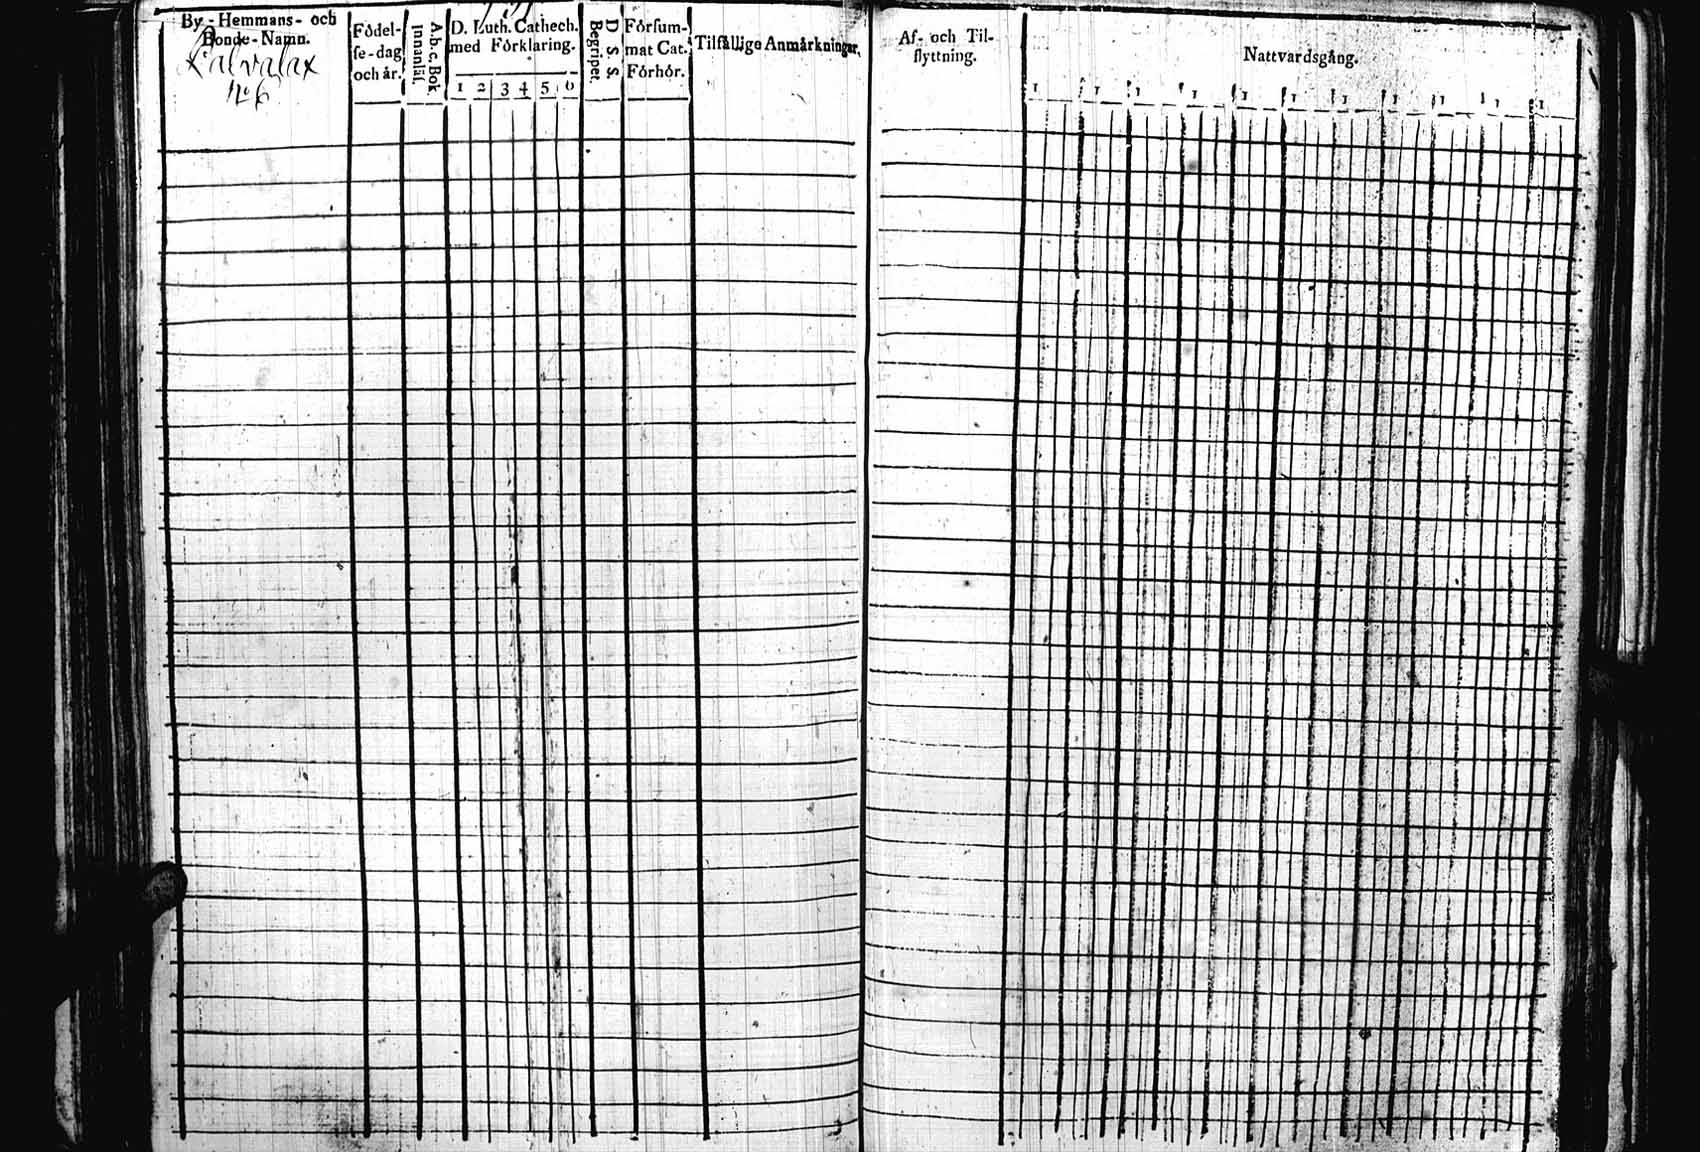 By-Hemmans- och
Bonde-Namn.
Kalvalax
No 6
Födel-
se-dag
och år.
A.b.c, Bok
Innanläs.
D. Luth. Cathech.
med Förklaring.
1 2 3 4 5 6
D. S. S.
Begripet.
Försum-
mat Cat.
Förhör.
Tilfällige Anmärkningar.
Af- och Til-
flyttning.
Nattvardsgång.
1 1 1 1 1 1 1 1 1 1 1